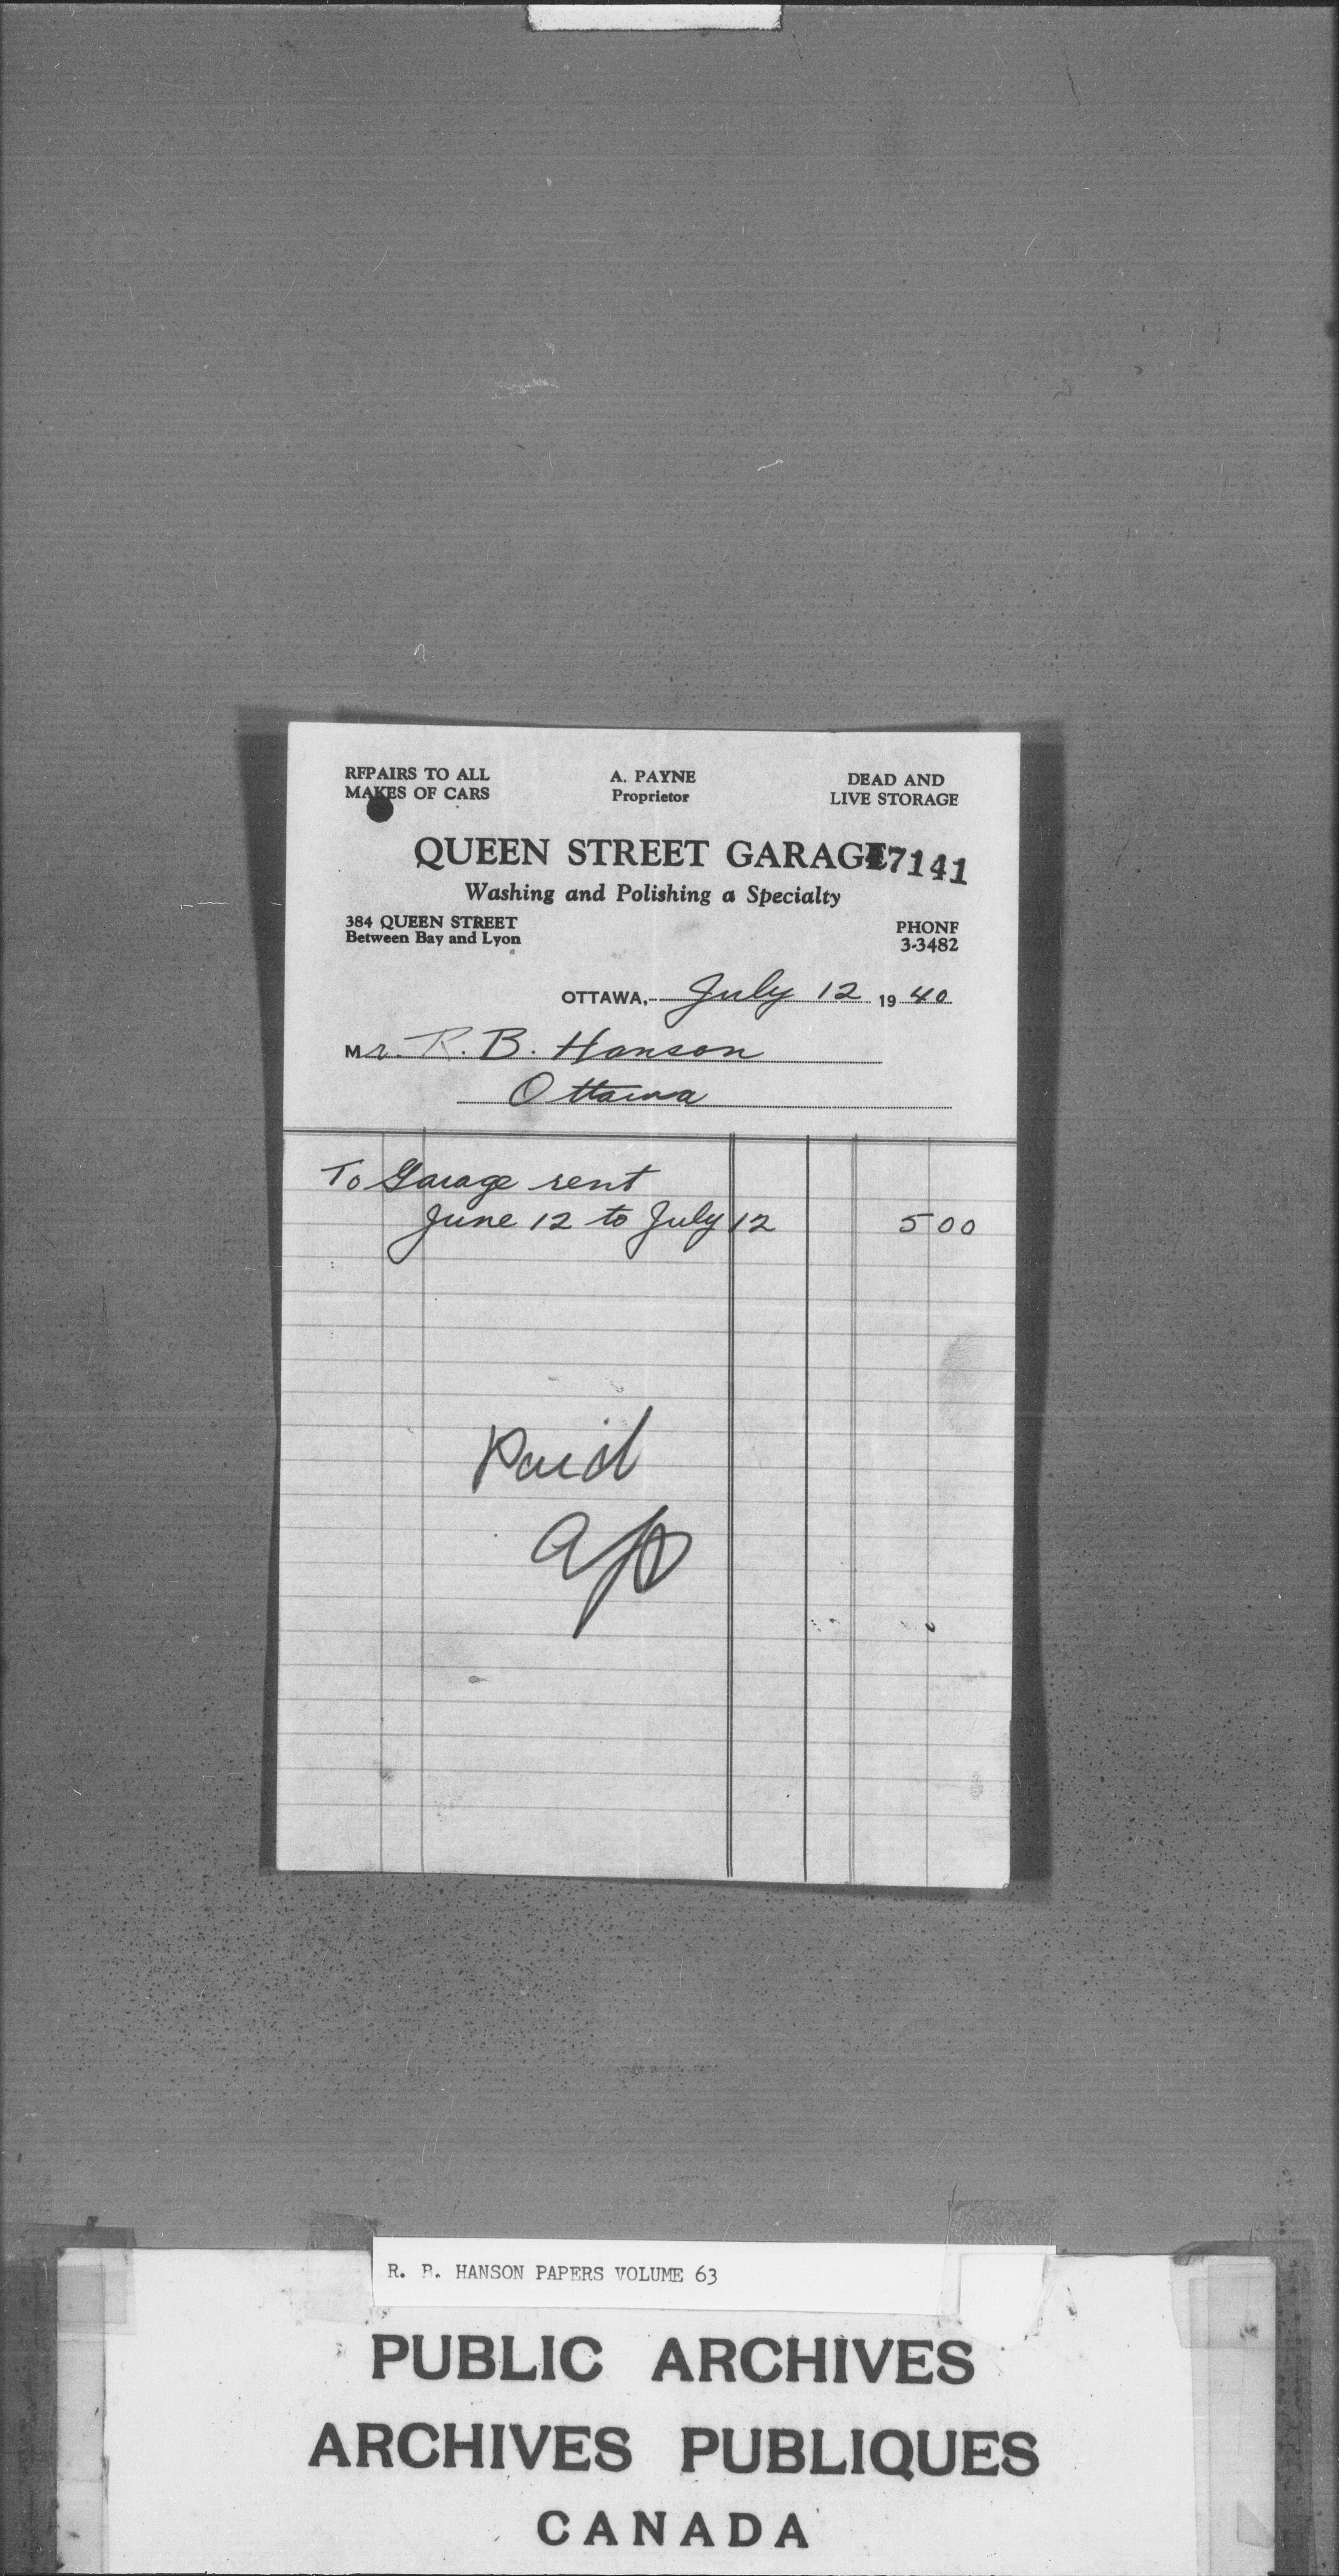 REPAIRS TO ALL
MAKES OF CARS
A. PAYNE
Proprietor
DEAD AND
LIVE STORAGE
QUEEN STREET GARAGE
7141
Washing and Polishing a Specialty
384 QUEEN STREET
Between Bay and Lyon
PHONE
3-3482
OTTAWA, July 12 1940
Mr. R. B. Hanson
Ottawa
To Garage rent
June 12 to July 12 5 00
Paid
AP
R. B. HANSON PAPERS VOLUME 63
PUBLIC ARCHIVES
ARCHIVES PUBLIQUES
CANADA